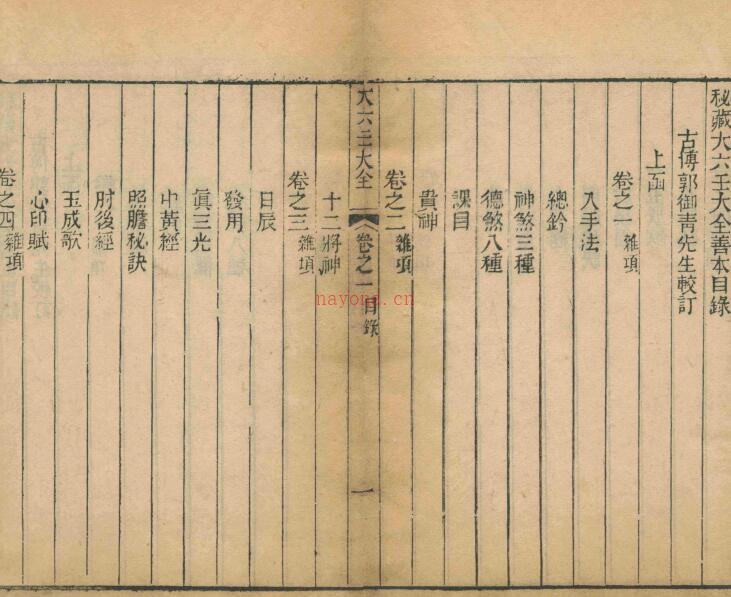 秘藏大六壬大全善本目錄
古傅郭御青先生較訂
上函
卷之一 雜項
入手法
總鈐
神煞三種
德煞八種
課目
貴神
卷之二 雜項
大六壬大全 卷之一 目錄 一
十二將神
卷之三 雜項
日辰
發用
眞三光
中黃經
照膽秘訣
肘後經
玉成歌
心印賦
卷之四 雜項
nayona.cn